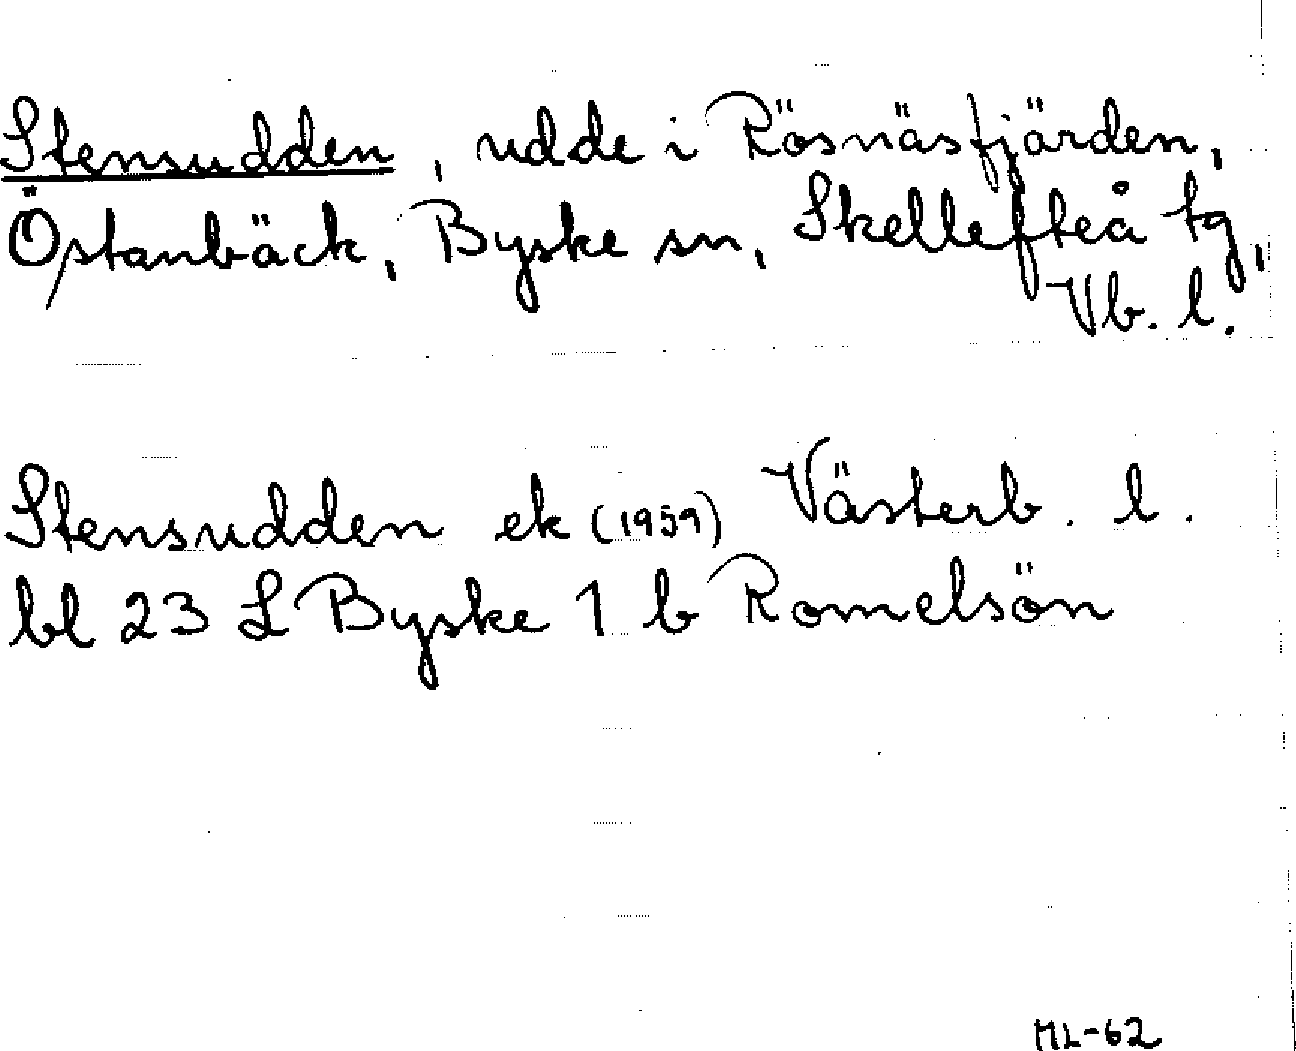 Stensudden, udde i Rösnäsfjärden,
Östanbäck, Byske sn, Skellefteå tg,
Vb. l.
Stensudden ek (1959) Västerb. l.
bl 23 L Byske 1 b Romelsön
ML-62